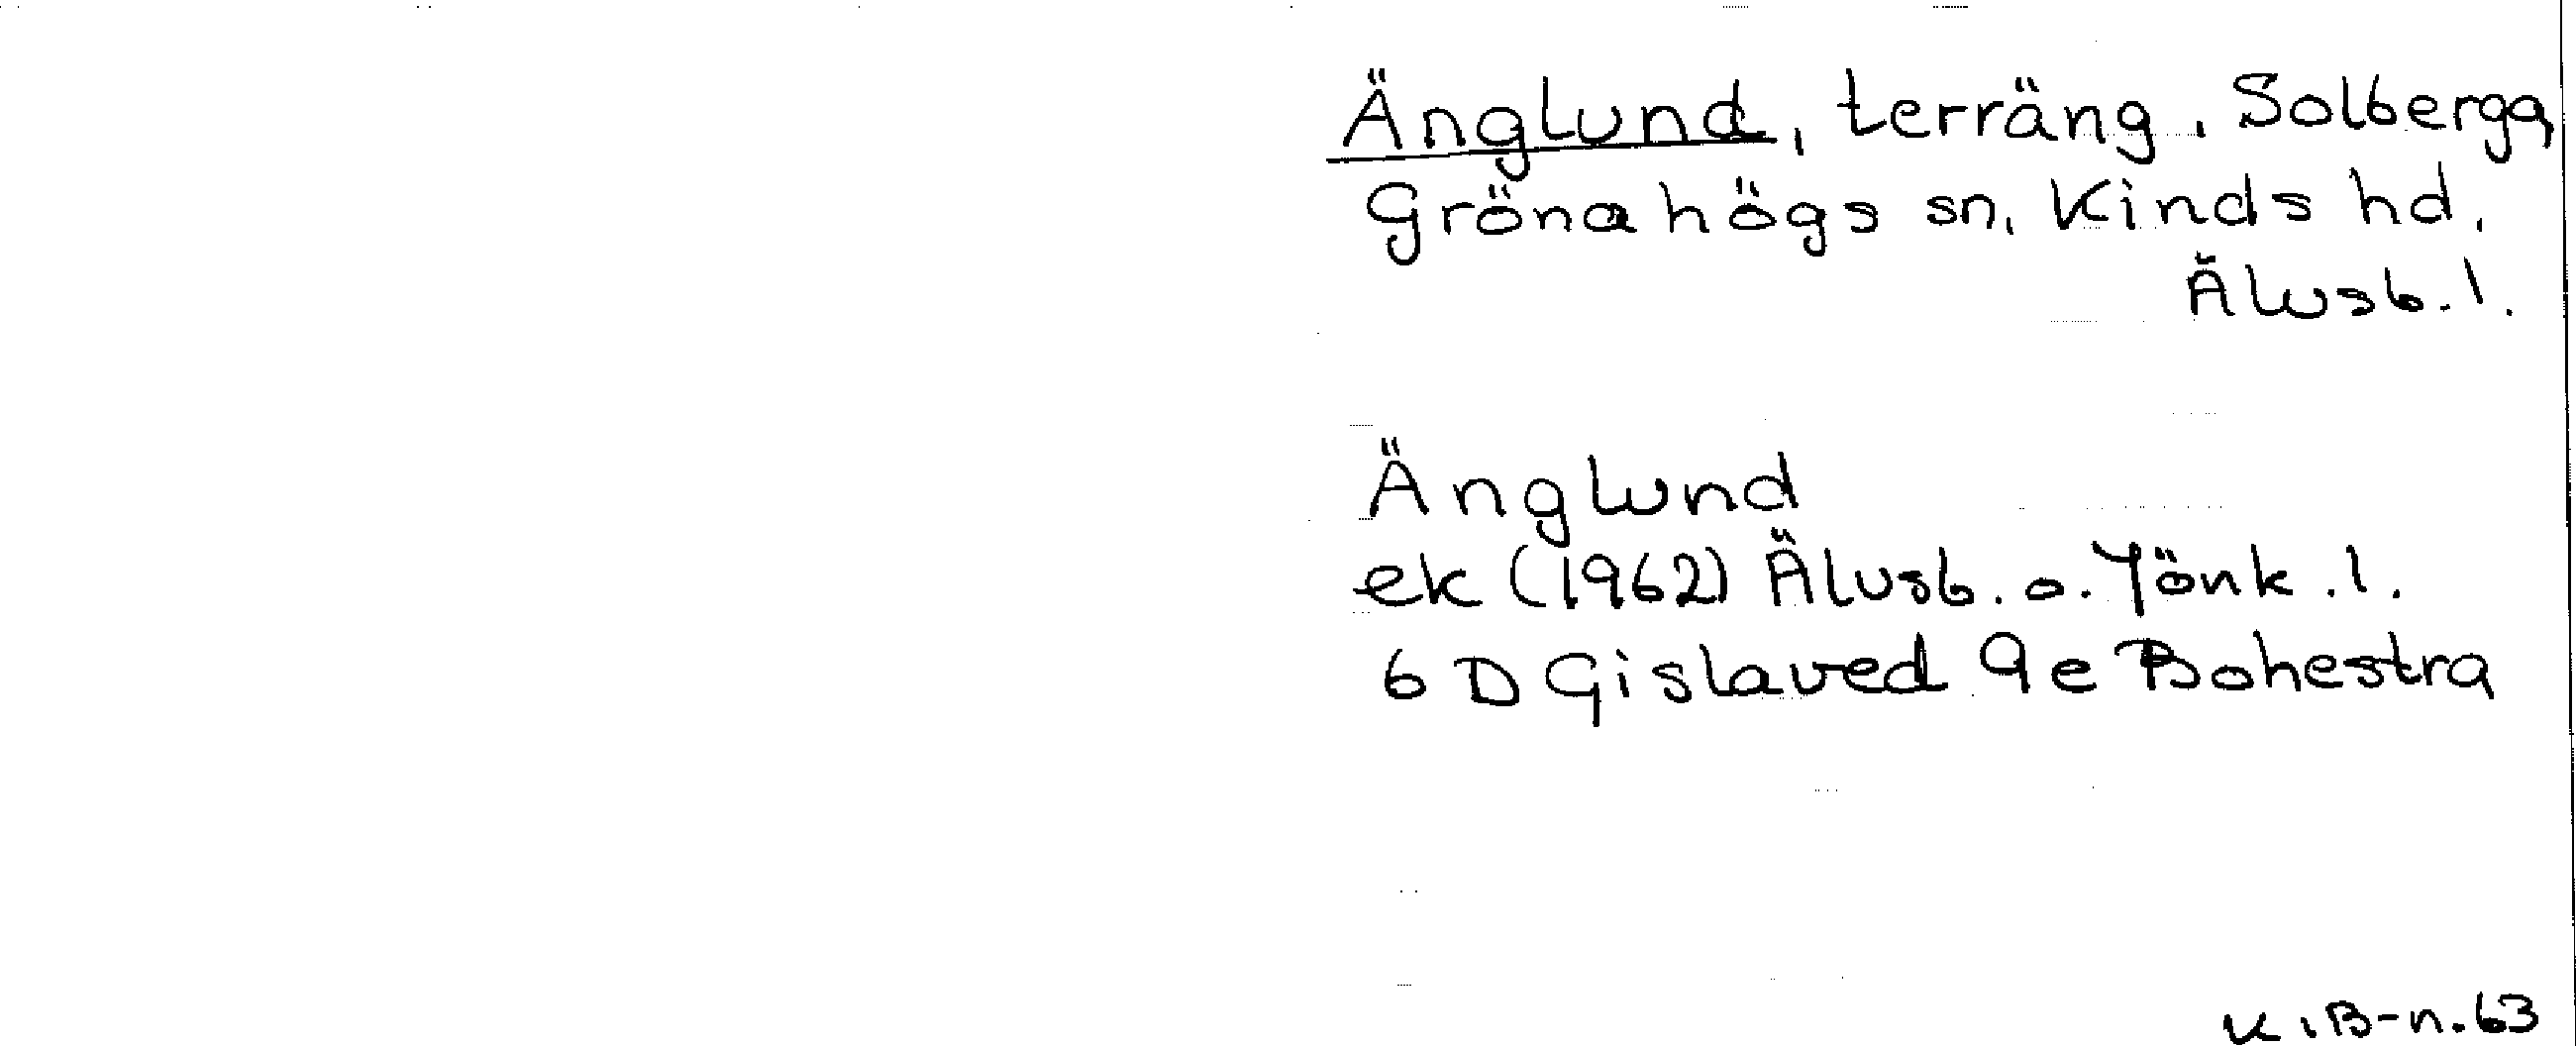 Änglund, terräng, Solberga,
Grönahögs sn, Kinds hd,
Älvsb. l.
Änglund
ek (1962) Älvsb. o. Jönk. l.
6 D Gislaved 9 e Bohestra
K. B-n. 63